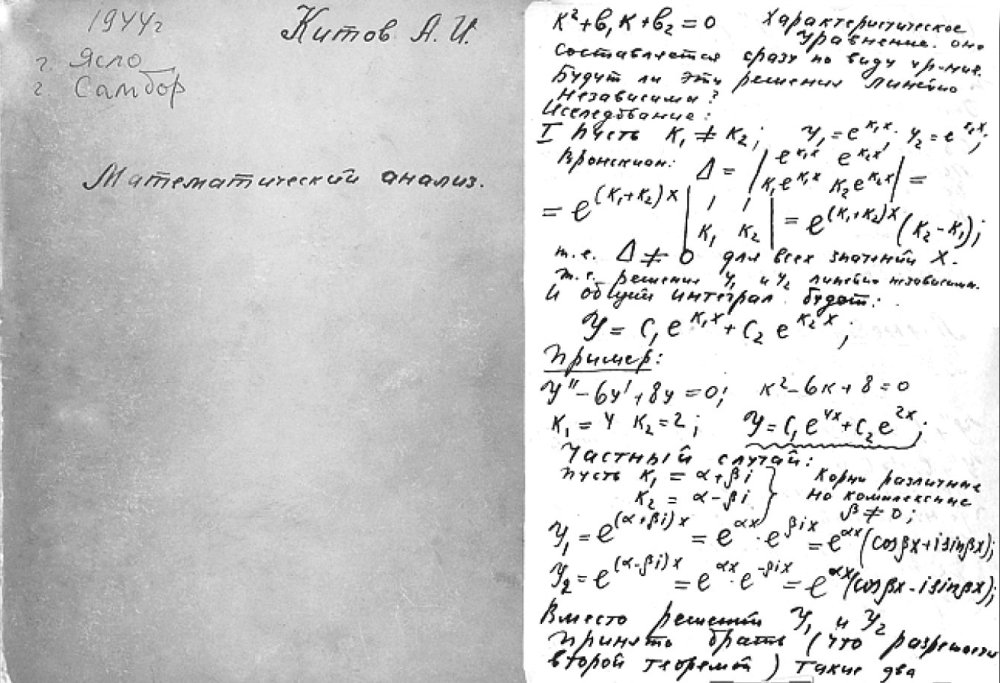 1944г
Китов А. И.
г. Ясло
г. Самбор
Математический анализ.
K²+b₁K+b₂=0 Характеристическое
уравнение. оно
составляется сразу по виду ур-ния.
Будут ли эти решения линейно
независимы?
Исследование:
I Пусть K₁ ≠ K₂; y₁=e^{K₁x}; y₂=e^{K₂x};
Вронскиан: Δ = | e^{K₁x} e^{K₂x} |
| K₁e^{K₁x} K₂e^{K₂x} | =
= e^{(K₁+K₂)x} | 1 1 |
| K₁ K₂ | = e^{(K₁+K₂)x}(K₂-K₁);
т.е. Δ ≠ 0 для всех значений X.
т.е. решения y₁ и y₂ линейно независим.
И общий интеграл будет:
y = C₁e^{K₁x}+C₂e^{K₂x};
Пример:
y''-6y'+8y=0; K²-6K+8=0
K₁=4 K₂=2; y=C₁e^{4x}+C₂e^{2x};
Частный случай:
Пусть K₁ = α+βi } Корни различные
K₂ = α-βi } но комплексные
β≠0;
y₁=e^{(α+βi)x} = e^{αx}·e^{βix} = e^{αx}(cosβx+isinβx);
y₂=e^{(α-βi)x} = e^{αx}·e^{-βix} = e^{αx}(cosβx-isinβx);
Вместо решений y₁ и y₂
принято брать (что разрешается
второй теоремой) такие два